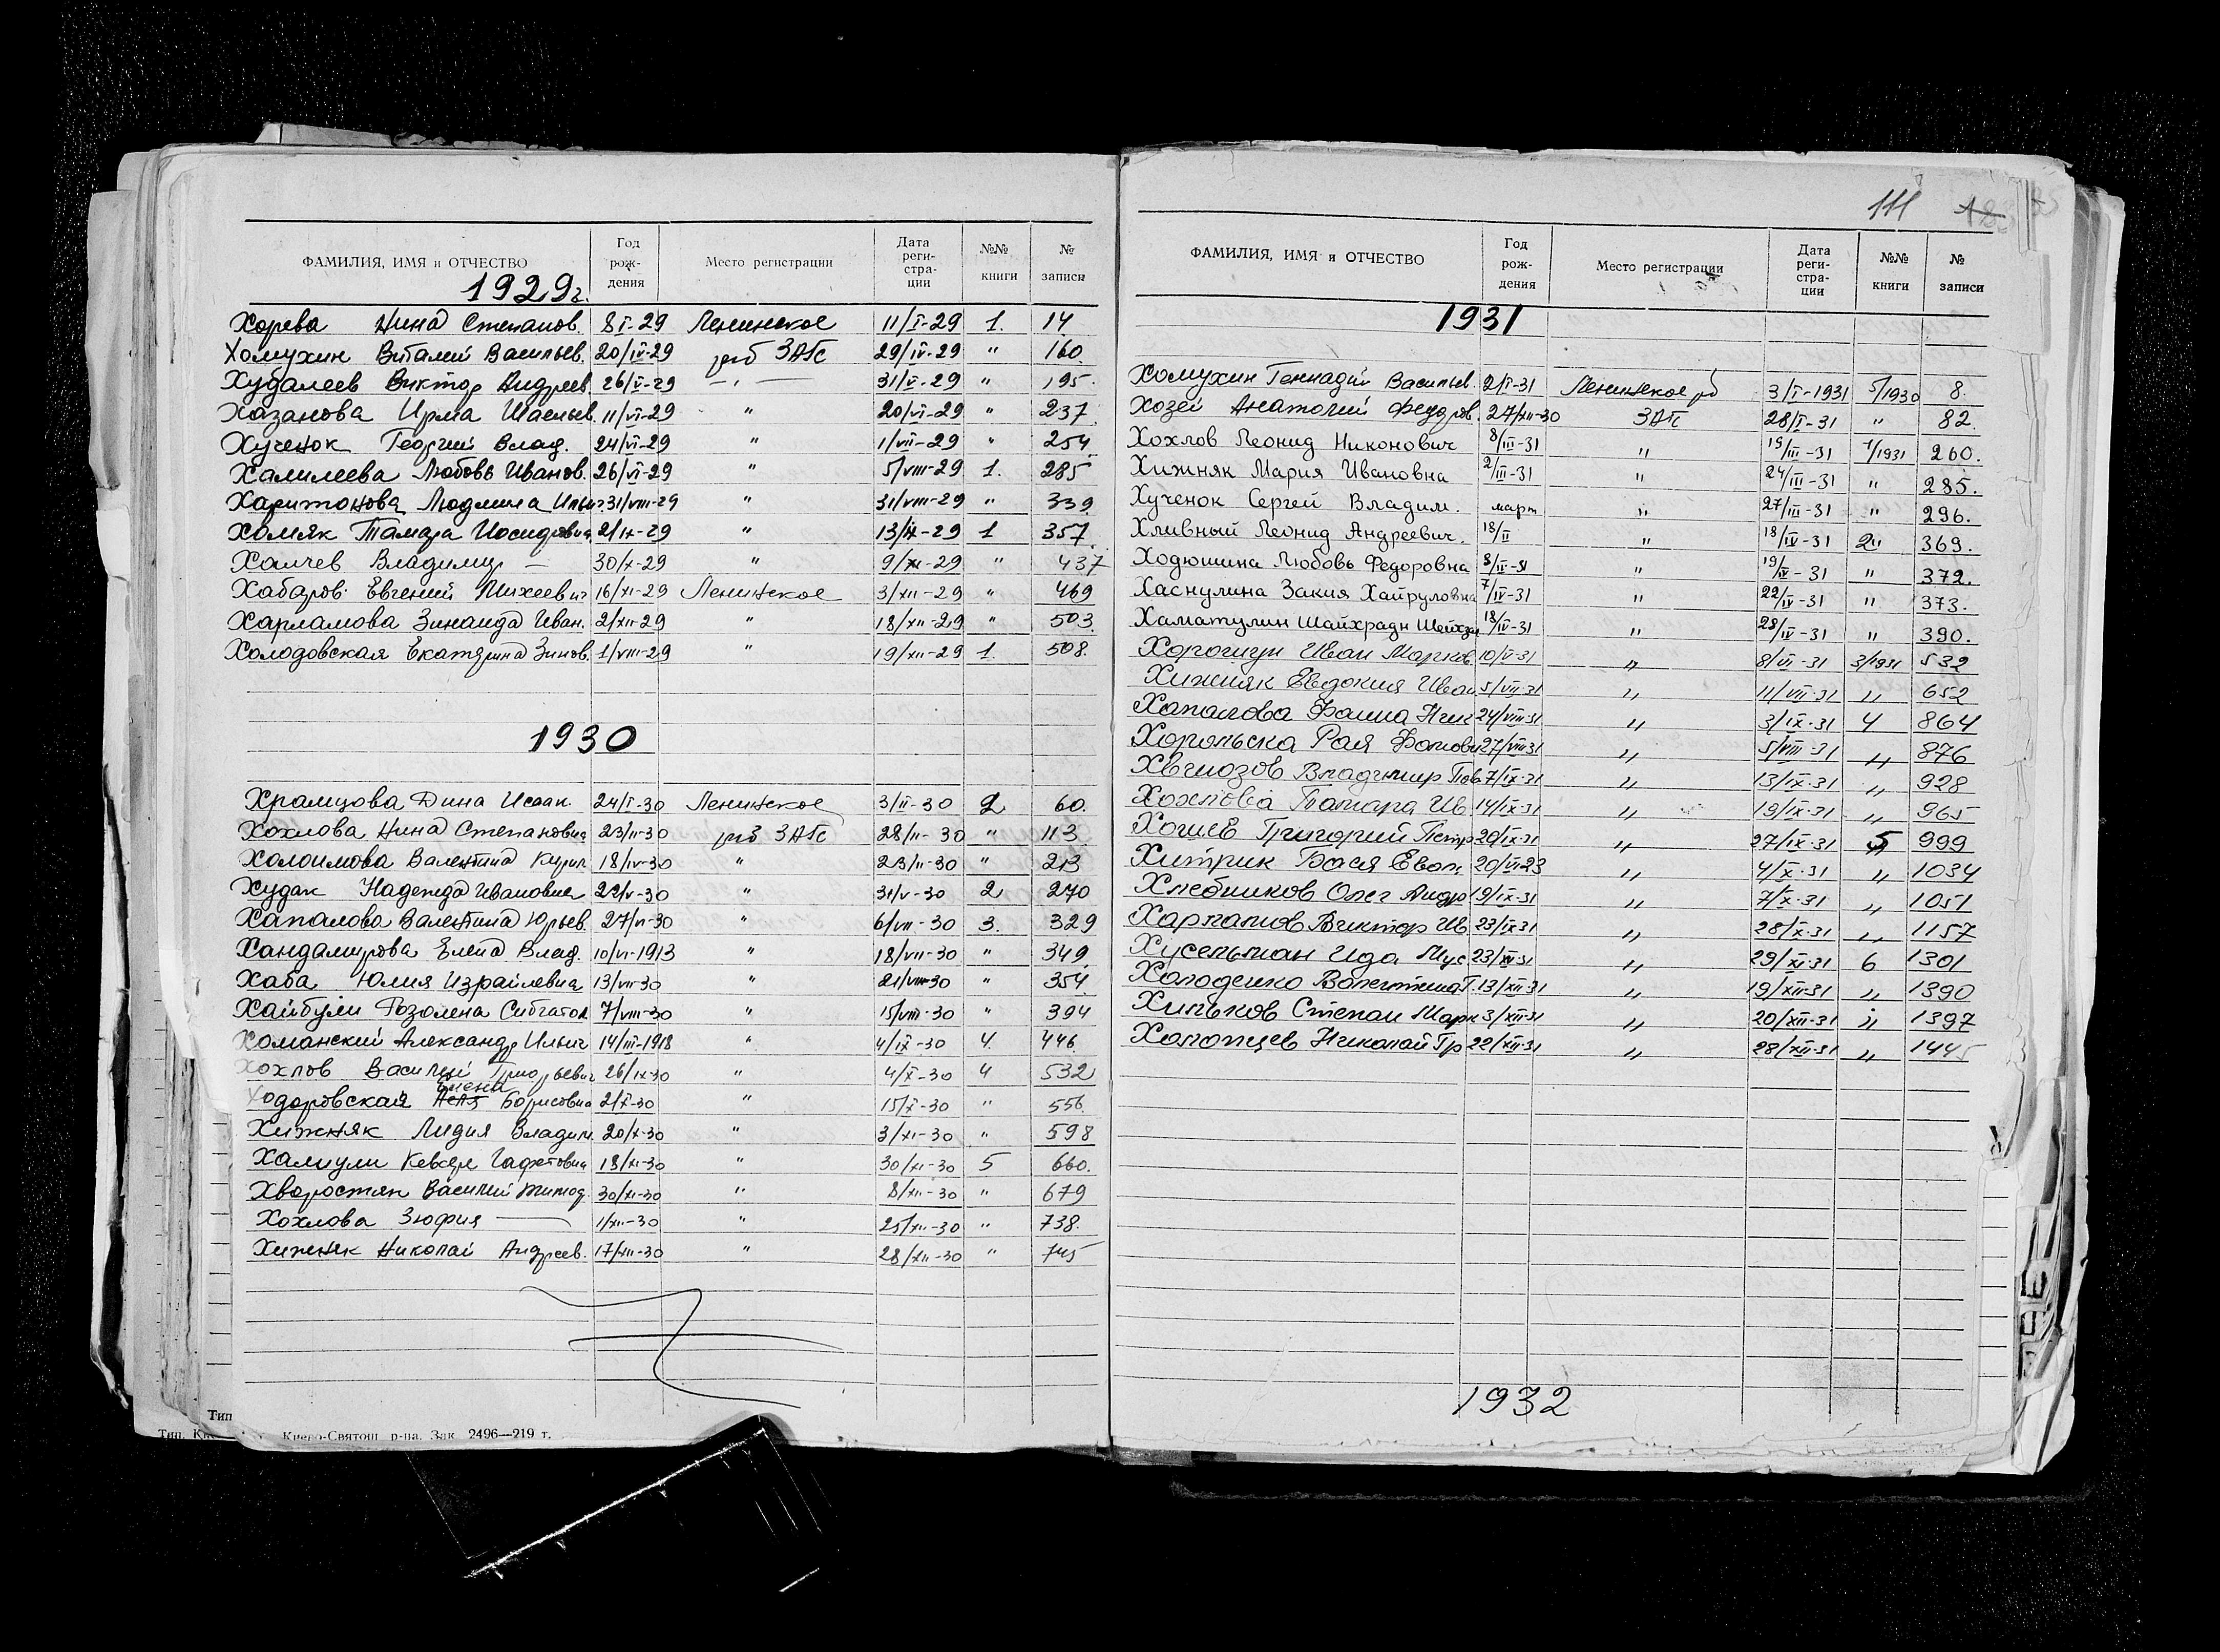 ФАМИЛИЯ, ИМЯ и ОТЧЕСТВО Год рож- дения Место регистрации Дата реги- стра- ции №№ книги № записи
1929г.
Хорева Нина Степанов. 8 I-29 Ленинское 11/I-29 1. 14
Хомухин Виталий Васильев. 20/IV-29 рб ЗАГС 29/IV-29 " 160
Худалеев Виктор Андреев 26/V-29 —"— 31/V-29 " 195.
Хазанова Ирма 11/VI-29 " 20/VI-29 " 237
Хученок Георгий Влад. 24/VI-29 " 1/VII-29 " 254
Халилеева Любовь Иванов. 26/VI-29 " 5/VIII-29 1. 285
Харитонова Людмила 31/VIII-29 " 31/VIII-29 " 339
Хомяк Тамара Иосифовна 2/IX-29 " 13/IX-29 1 357
Халчев Владимир — 30/X-29 " 9/XI-29 " 437
Хабаров Евгений Михеевич 16/XI-29 Ленинское 3/XII-29 " 469
Харламова Зинаида Иван. 2/XII-29 " 18/XII-29 " 503
Холодовская Екатерина Зинов. 1/VIII-29 " 19/XII-29 1. 508.
1930
Храмцова Дина Исаак. 24/I-30 Ленинское 3/II-30 2 60.
Хохлова Нина Степановна 23/II-30 рб ЗАГС 28/II-30 " 113
Холоимова Валентина Кирил. 18/IV-30 " 23/II-30 " 213
Худак Надежда Ивановна 22/V-30 " 31/V-30 2 270
Хапалова Валентина Юрьев. 27/VI-30 " 6/VII-30 3. 329
Хандамирова Елена Влад. 10/VI-1913 " 18/VII-30 " 349
Хаба Юлия Израилевна 13/VII-30 " 21/VIII-30 " 354
Хайбули Розалена Сибгатов. 7/VIII-30 " 15/VIII-30 " 394
Хоманский Александр Ильич 14/III-1918 " 4/IX-30 4. 446.
Хохлов Василий Григорьевич 26/IX-30 " 4/X-30 4 532
Елена
Ходоровская Борисовна 2/X-30 " 15/X-30 " 556
Хижняк Лидия Владим. 20/X-30 " 3/XI-30 " 598
Халиули Кевсер Гафетовна 18/XI-30 " 30/XI-30 5 660.
Хворостян Василий Тимоф. 30/XI-30 " 8/XII-30 " 679
Хохлова Зюфия — 1/XII-30 " 25/XII-30 " 738.
Хижняк Николай Андреев. 17/XII-30 " 28/XII-30 " 745
Тип
Тип. Киево-Святош. р-на. Зак. 2496—219 т.
111
ФАМИЛИЯ, ИМЯ и ОТЧЕСТВО Год рож- дения Место регистрации Дата реги- стра- ции №№ книги № записи
1931
Хомухин Геннадий Васильев. 2/I-31 Ленинское рб 3/I-1931 5/1930 8.
Хозей Анатолий Федоров. 27/XII-30 ЗАГС 28/I-31 " 82.
Хохлов Леонид Никонович 8/III-31 " 19/III-31 1/1931 260.
Хижняк Мария Ивановна 2/III-31 " 24/III-31 " 285.
Хученок Сергей Владим. март " 27/III-31 " 296.
Хливный Леонид Андреевич. 18/II " 18/IV-31 2" 369.
Ходюшина Любовь Федоровна 8/IV-31 " 19/IV-31 " 372.
Хаснулина Закия Хайруловна 7/IV-31 " 22/IV-31 " 373.
Хаматулин Шайхради 18/IV-31 " 28/IV-31 " 390.
Хорошун Иван Марков 10/V-31 " 8/VI-31 3/1931 532
Хижняк Евдокия Иван 5/VII-31 " 11/VII-31 " 652
Хапалова Фаина 24/VIII-31 " 3/IX-31 4 864
Хорольска Рая 27/VIII-31 " 5/VIII-31 " 876
Владимир Пав 7/IX-31 " 13/IX-31 " 928
Хохлова Тамара Ив 14/IX-31 " 19/IX-31 " 965
Хошев Григорий Петр 20/IX-31 " 27/IX-31 5 999
Хитрик Бася 20/VI-23 " 4/X-31 " 1034
Хлебников Олег Андр 19/IX-31 " 7/X-31 " 1051
Харланов Виктор Ив 23/IX-31 " 28/X-31 " 1157
Хусельман Ида Мус 23/XI-31 " 29/XI-31 6 1301
Холоденко Валентина Г. 13/XII-31 " 19/XII-31 " 1390
Хильков Степан Марк 3/XII-31 " 20/XII-31 " 1397
Холопцев Николай Гр 22/XII-31 " 28/XII-31 " 1445
1932